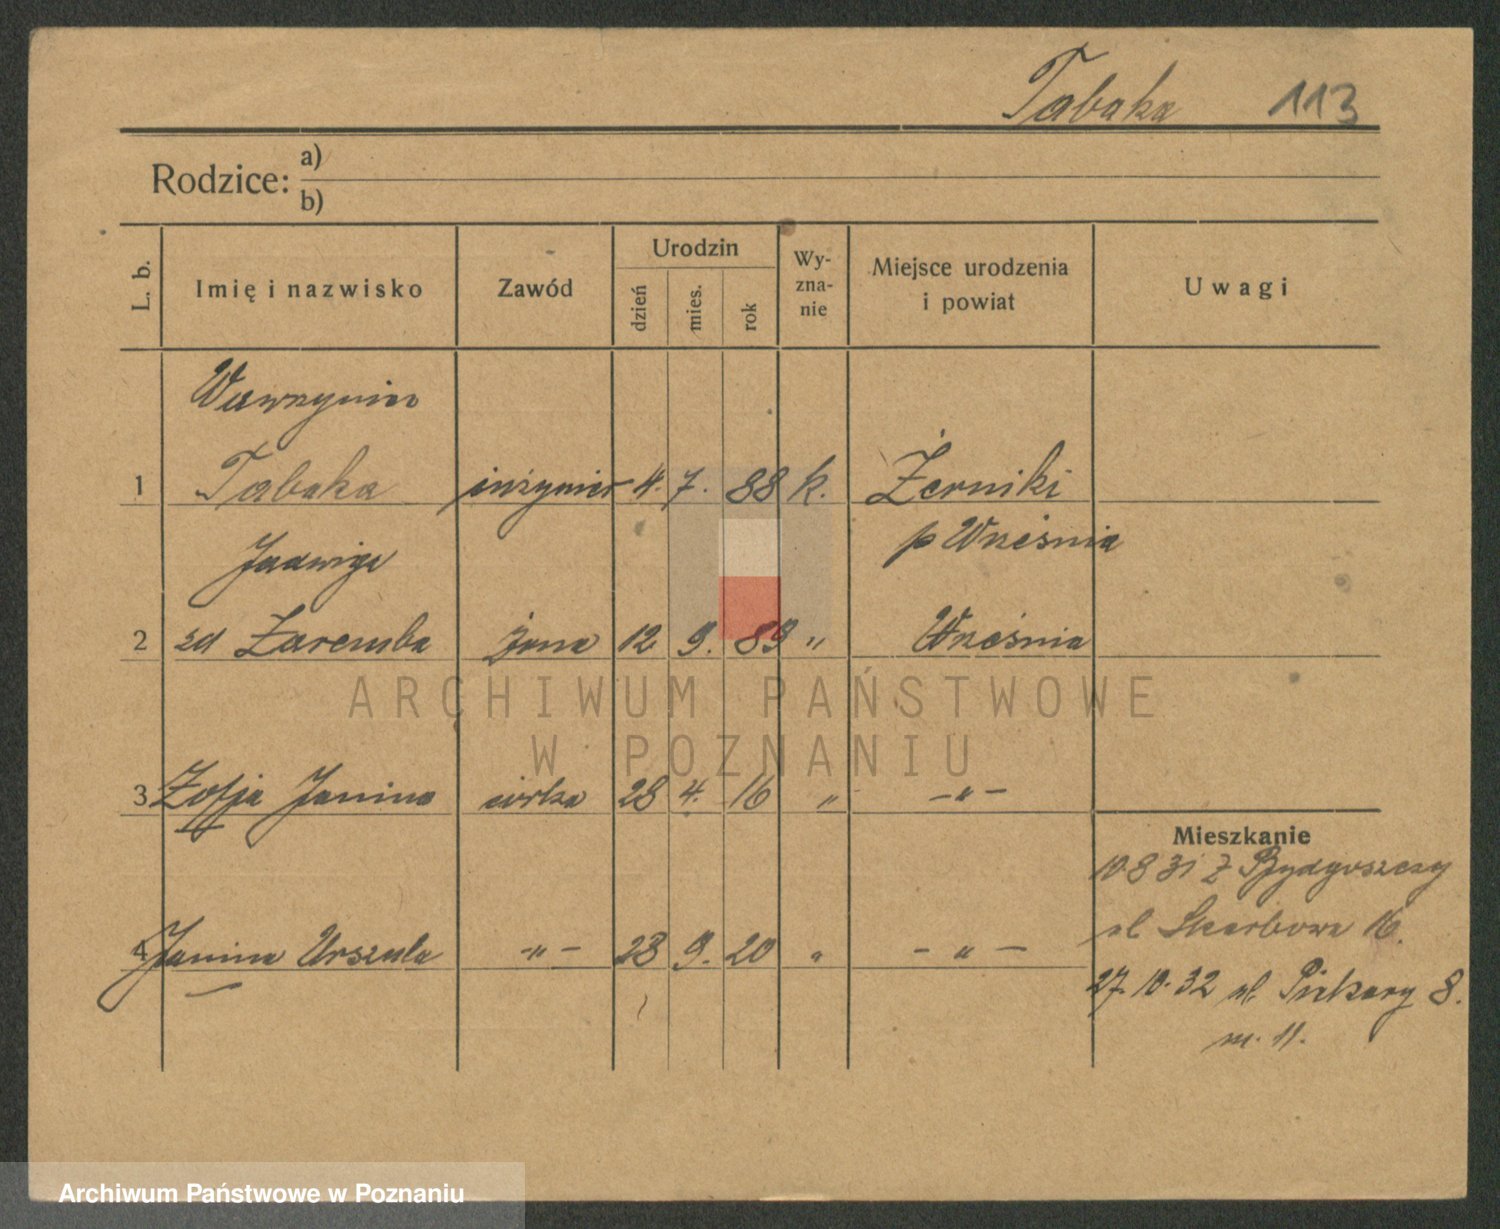 Tabaka 113
Rodzice: a)
b)
L. b. Imię i nazwisko Zawód Urodzin dzień mies. rok Wy-zna-nie Miejsce urodzenia i powiat Uwagi
Wawrzyniec
1 Tabaka inżynier 4. 7. 88 k. Żerniki
Jadwiga p Września
2 zd Zaremba żona 12 9. 89 " Września
3 Zofja Janina córka 28 4. 16 " - " -
Mieszkanie
10 8 31 z Bydgoszczy
ul Skarbowa 16.
4 Janina Urszula - " - 23 9. 20 " - " -
27. 10. 32 ul. Piekary 8.
m. 11.
ARCHIWUM PAŃSTWOWE
W POZNANIU
Archiwum Państwowe w Poznaniu